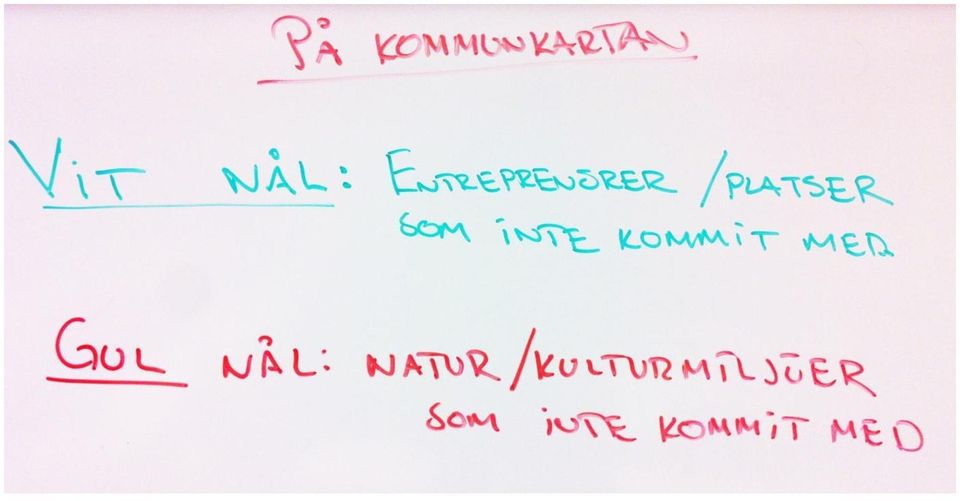 PÅ KOMMUNKARTAN
ViT NÅL: ENTREPRENÖRER / PLATSER
SOM iNTE KOMMiT MED
GUL NÅL: NATUR / KULTURMILJÖER
SOM iNTE KOMMiT MED